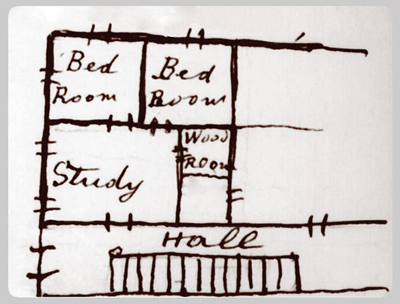 Bed
Room
Bed
Room
Wood
Room
Study
Hall